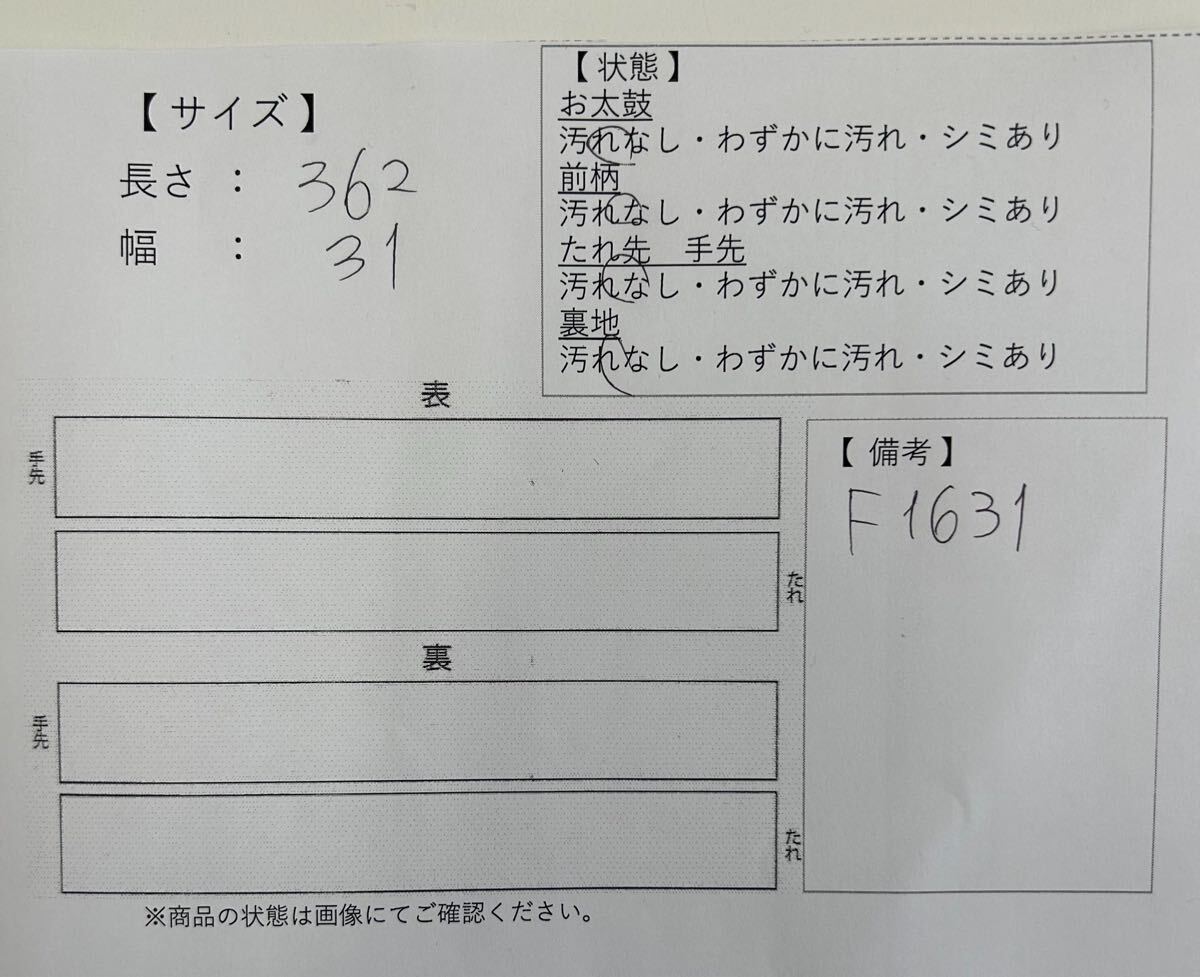 【 サイズ 】
長さ ： 362
幅 ： 31
【 状態 】
お太鼓
汚れなし・わずかに汚れ・シミあり
前柄
汚れなし・わずかに汚れ・シミあり
たれ先 手先
汚れなし・わずかに汚れ・シミあり
裏地
汚れなし・わずかに汚れ・シミあり
表
手先
たれ
裏
手先
たれ
【 備考 】
F1631
※商品の状態は画像にてご確認ください。